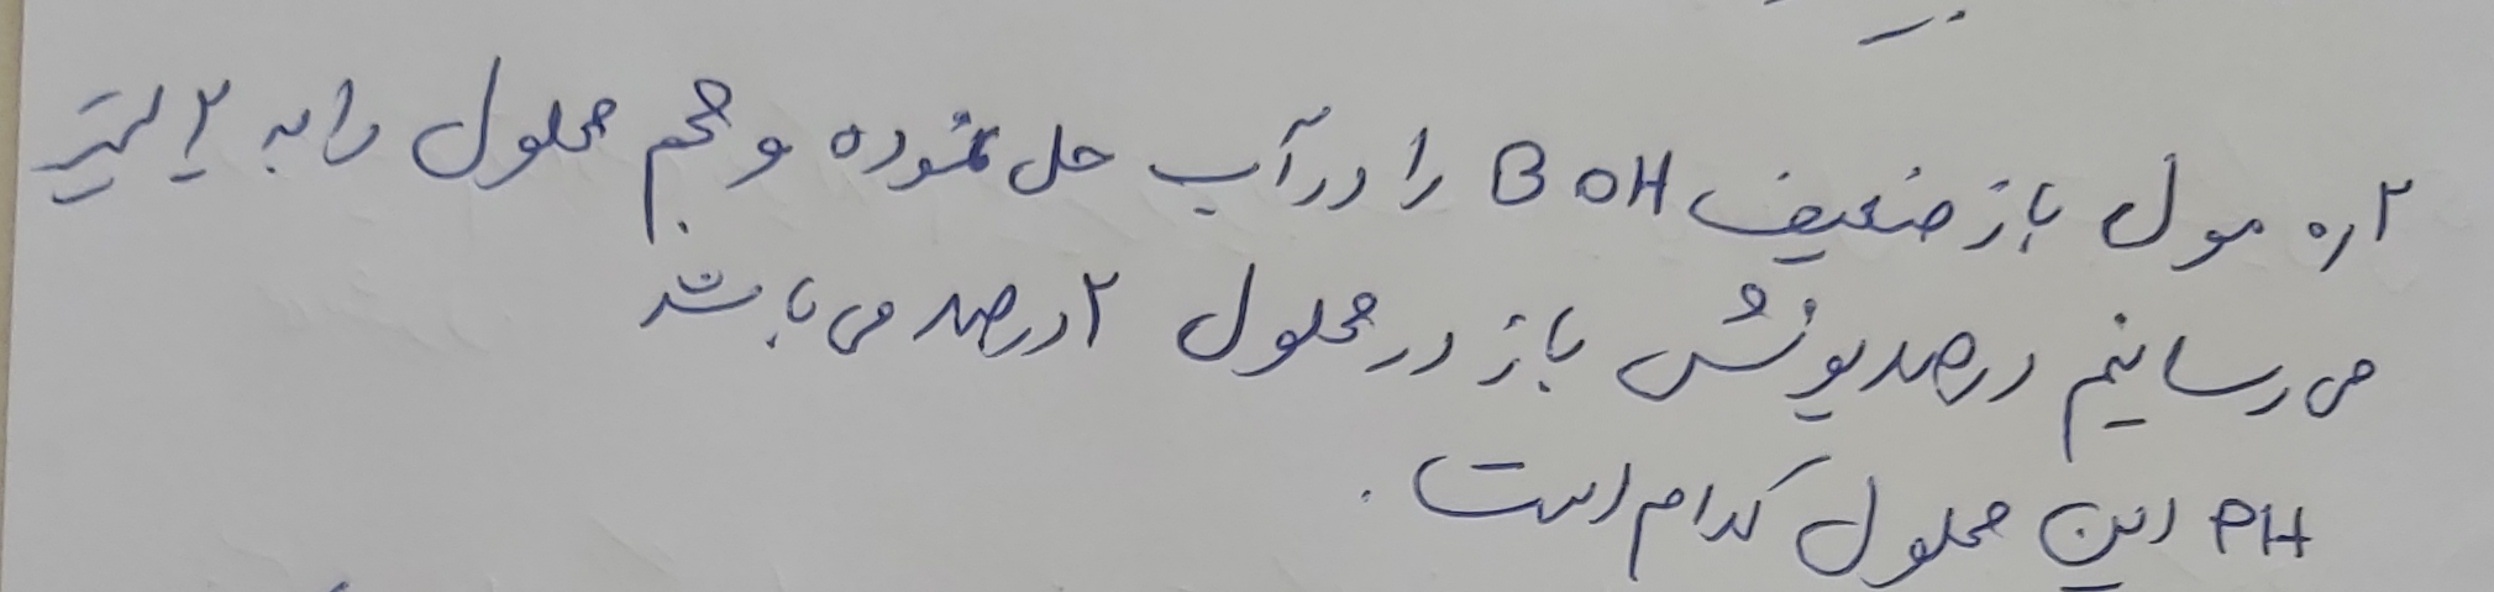 ۰٫۲ مول باز ضعیف BOH را در آب حل نموده و حجم محلول را به ۲ لیتر
می رسانیم درصد یونش باز در محلول ۲ درصد می باشد
PH این محلول کدام است.